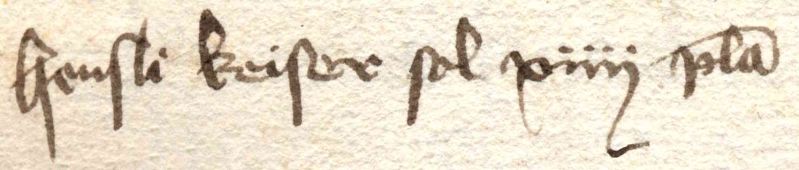 Hensli keiser sol xiiij pła